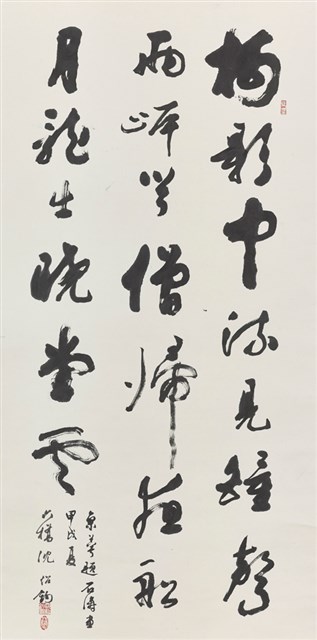 樹影中流見鐘聲
兩岸聞僧歸夜船
月龍出曉堂雲
題石濤畫
甲戌夏
沈